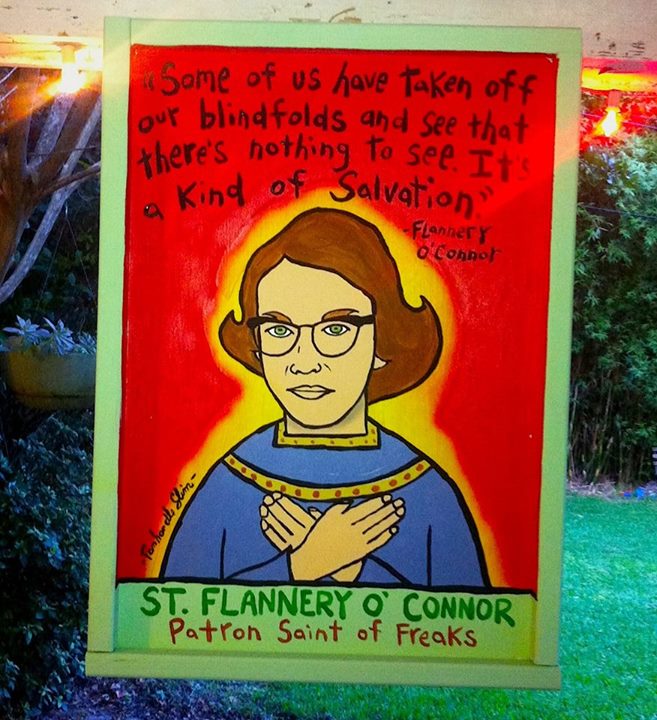 "Some of us have taken off
our blindfolds and see that
there's nothing to see. It's
a kind of Salvation."
-Flannery
O'Connor
-Panhandle Slim-
ST. FLANNERY O' CONNOR
Patron Saint of Freaks